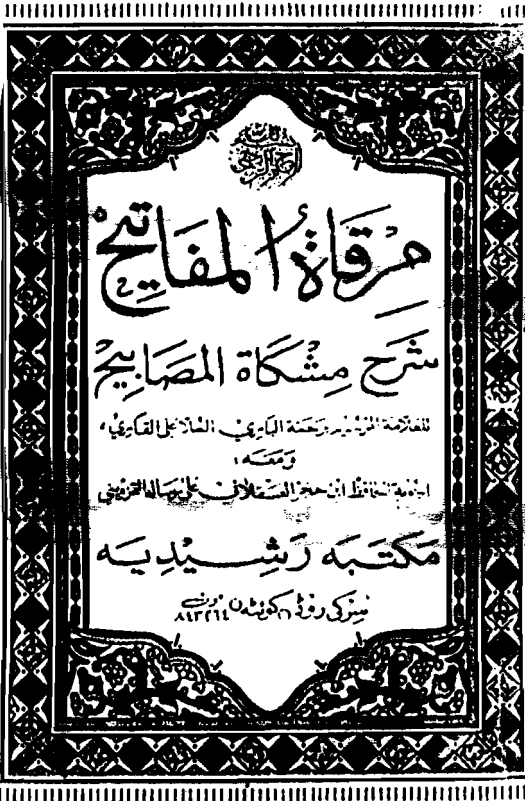 مِرقَاةُ المفَاتِيح
شَرح مِشكَاة المَصَابِيح
للعَلامَة المزيد برَحمَة البَاري: المُلا عَلي القَارِي،
وَمَعَه:
أجوبة الحَافِظ ابن حجر العسقلاني على رسالة القزويني
مَكتَبَه رَشِيدِيَه
سرکی روڈ کوئٹہ فون ٨٤٢٢٦٤